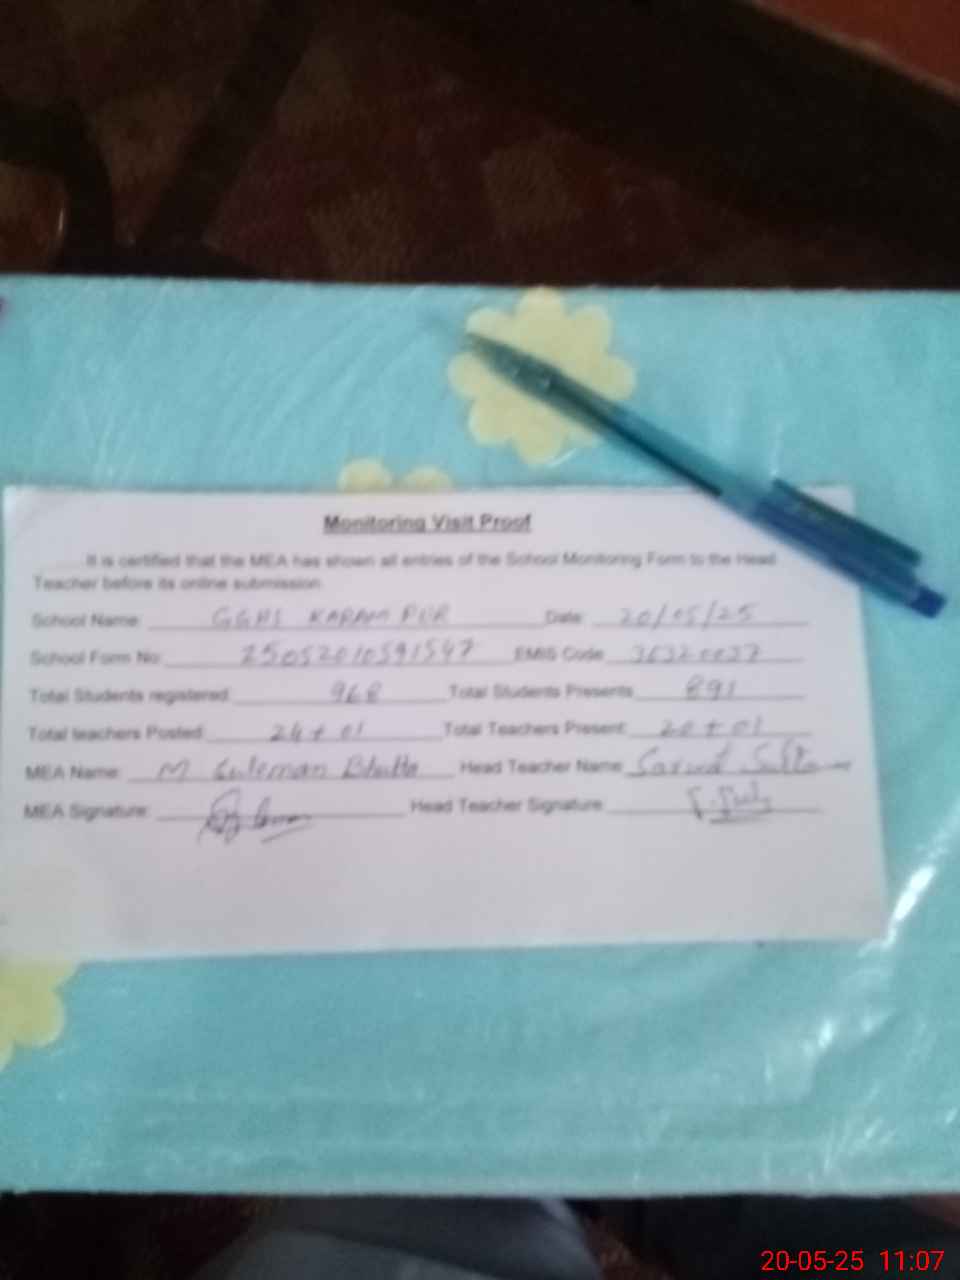 Monitoring Visit Proof
It is certified that the MEA has shown all entries of the School Monitoring Form to the Head
Teacher before its online submission.
School Name: KARAM PUR Date: 20/05/25
School Form No: 25052010591547 EMIS Code 36320037
Total Students registered: 968 Total Students Presents 891
Total teachers Posted: 24 + 01 Total Teachers Present: 20 + 01
MEA Name: M Suleman Bhutta Head Teacher Name
MEA Signature: Head Teacher Signature:
20-05-25 11:07